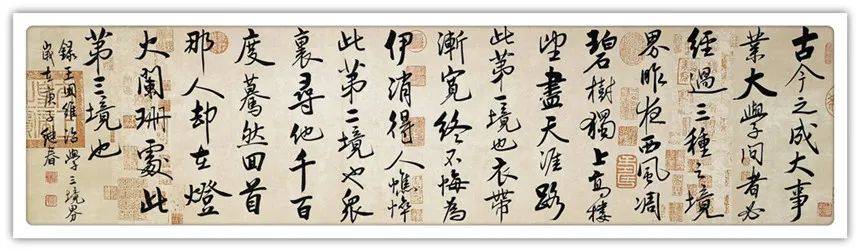 古今之成大事
業大學問者必
經過三種之境
界昨夜西風凋
碧樹獨上高樓
望盡天涯路
此第一境也衣帶
漸寬終不悔為
伊消得人憔悴
此第二境也眾
裏尋他千百
度驀然回首
那人却在燈
火闌珊處此
第三境也
錄王國維治學三境界
歲在庚子春